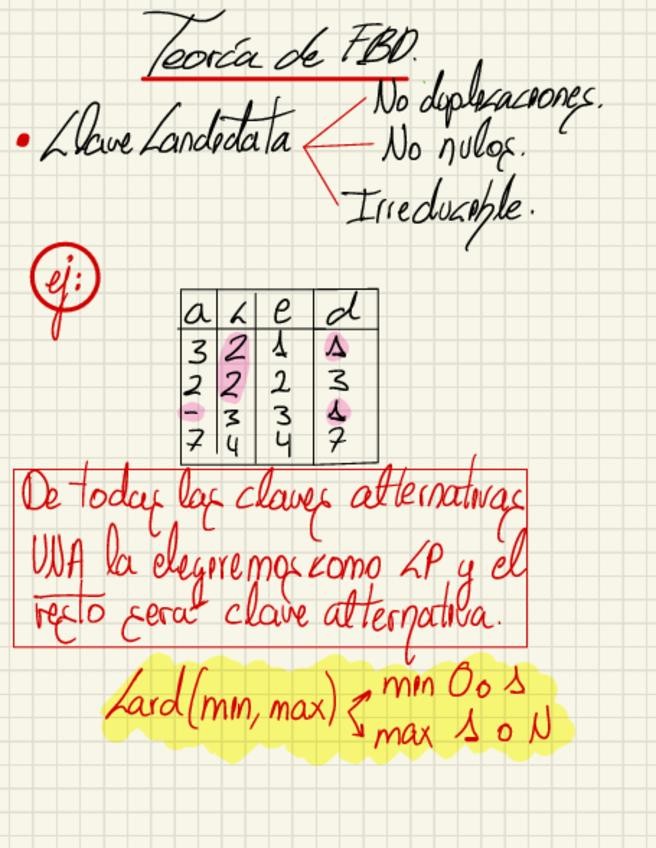 Teoría de FBD.
• Clave Candidata
No duplicaciones.
No nulos.
Irreducible.
ej:
a c e d
3 2 1 1
2 2 2 3
- 3 3 1
7 4 4 7
De todas las claves alternativas
UNA la elegiremos como CP y el
resto será clave alternativa.
Card(min, max)
min 0 o 1
max 1 o N